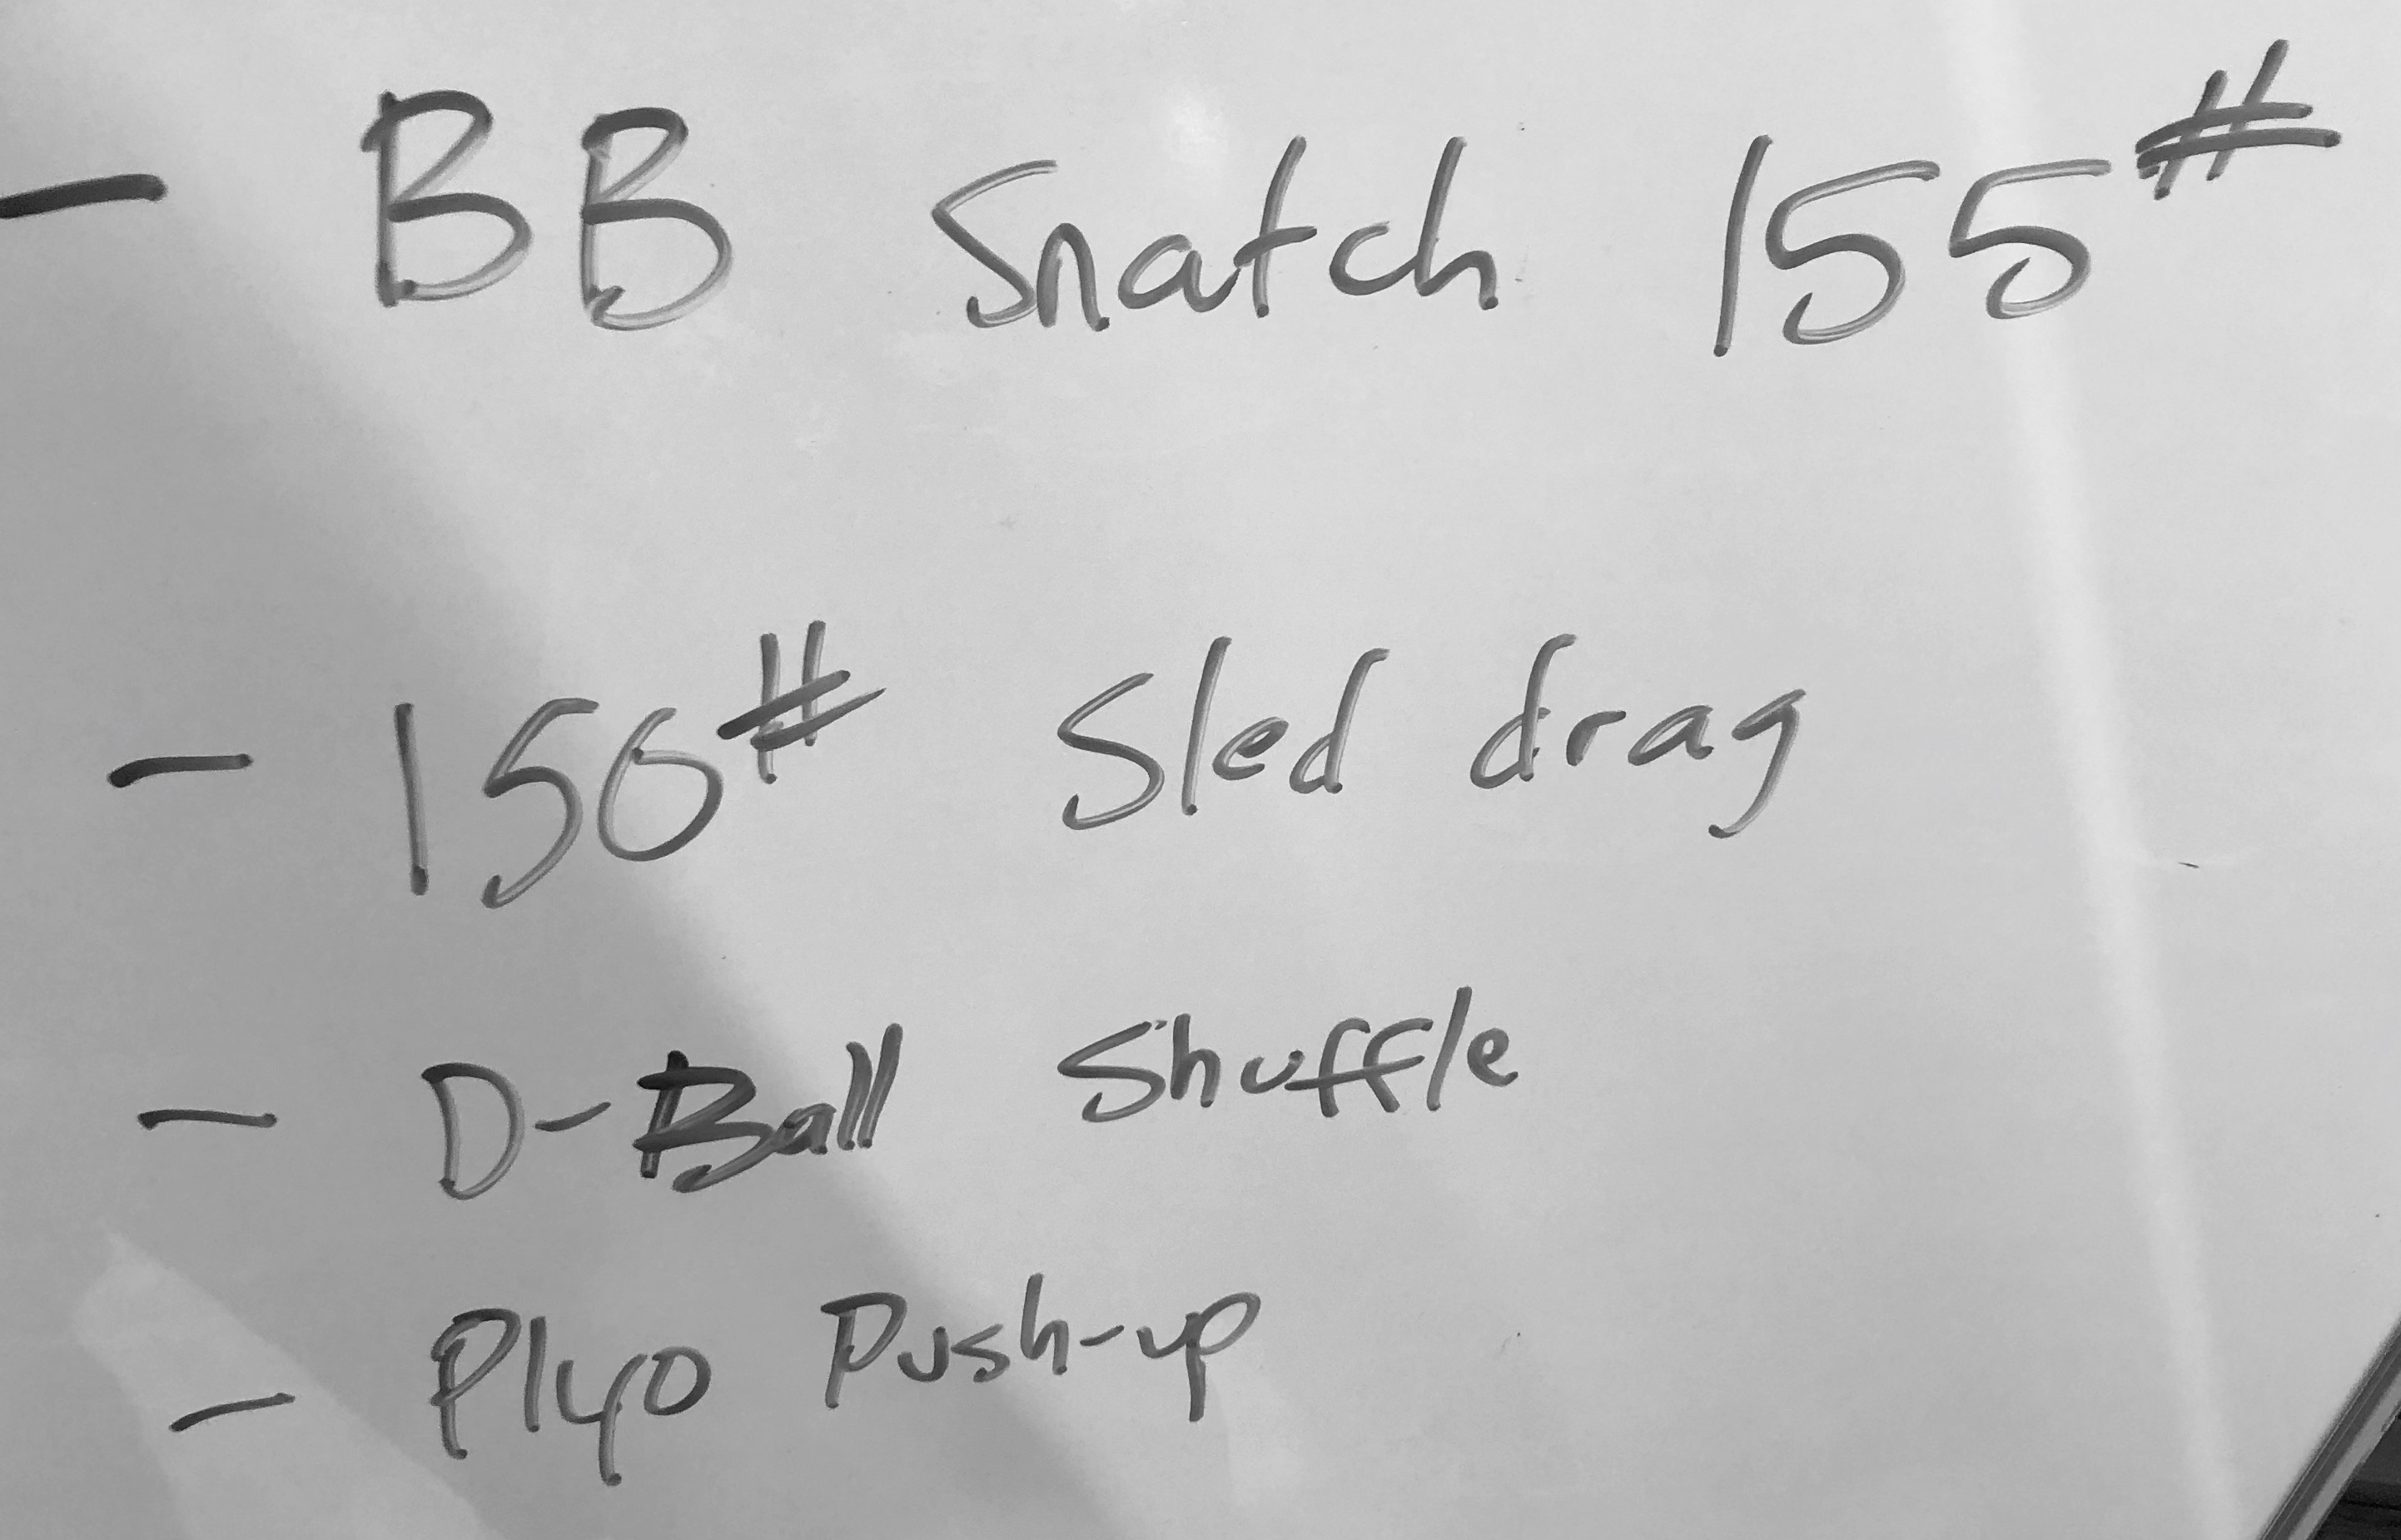 - BB Snatch 155#
- 150# Sled drag
- D-Ball Shuffle
- Plyo Push-up